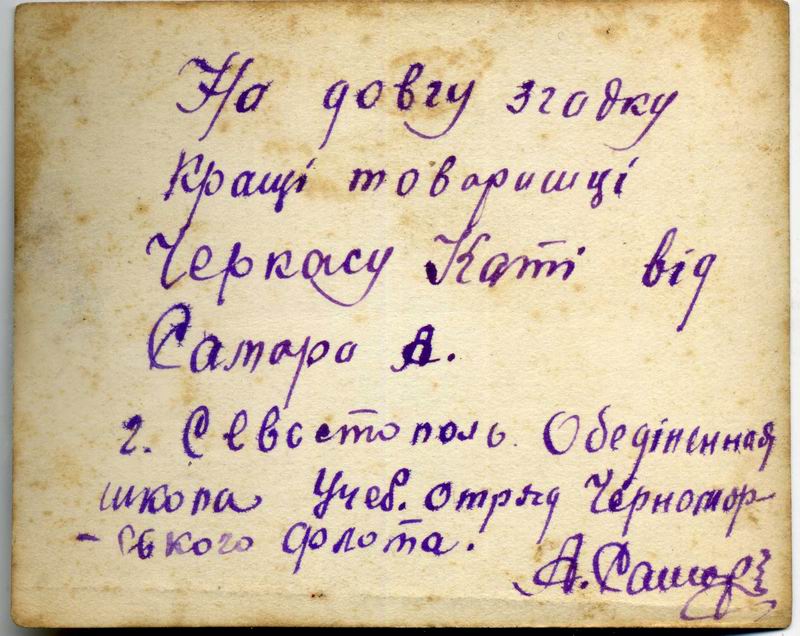 На довгу згадку
кращі товаришці
Черкасу Каті від
Самара А.
г. Севостополь. Обедіненная
школа Учеб. отряд Черномор-
-ського флота.
А. Самар